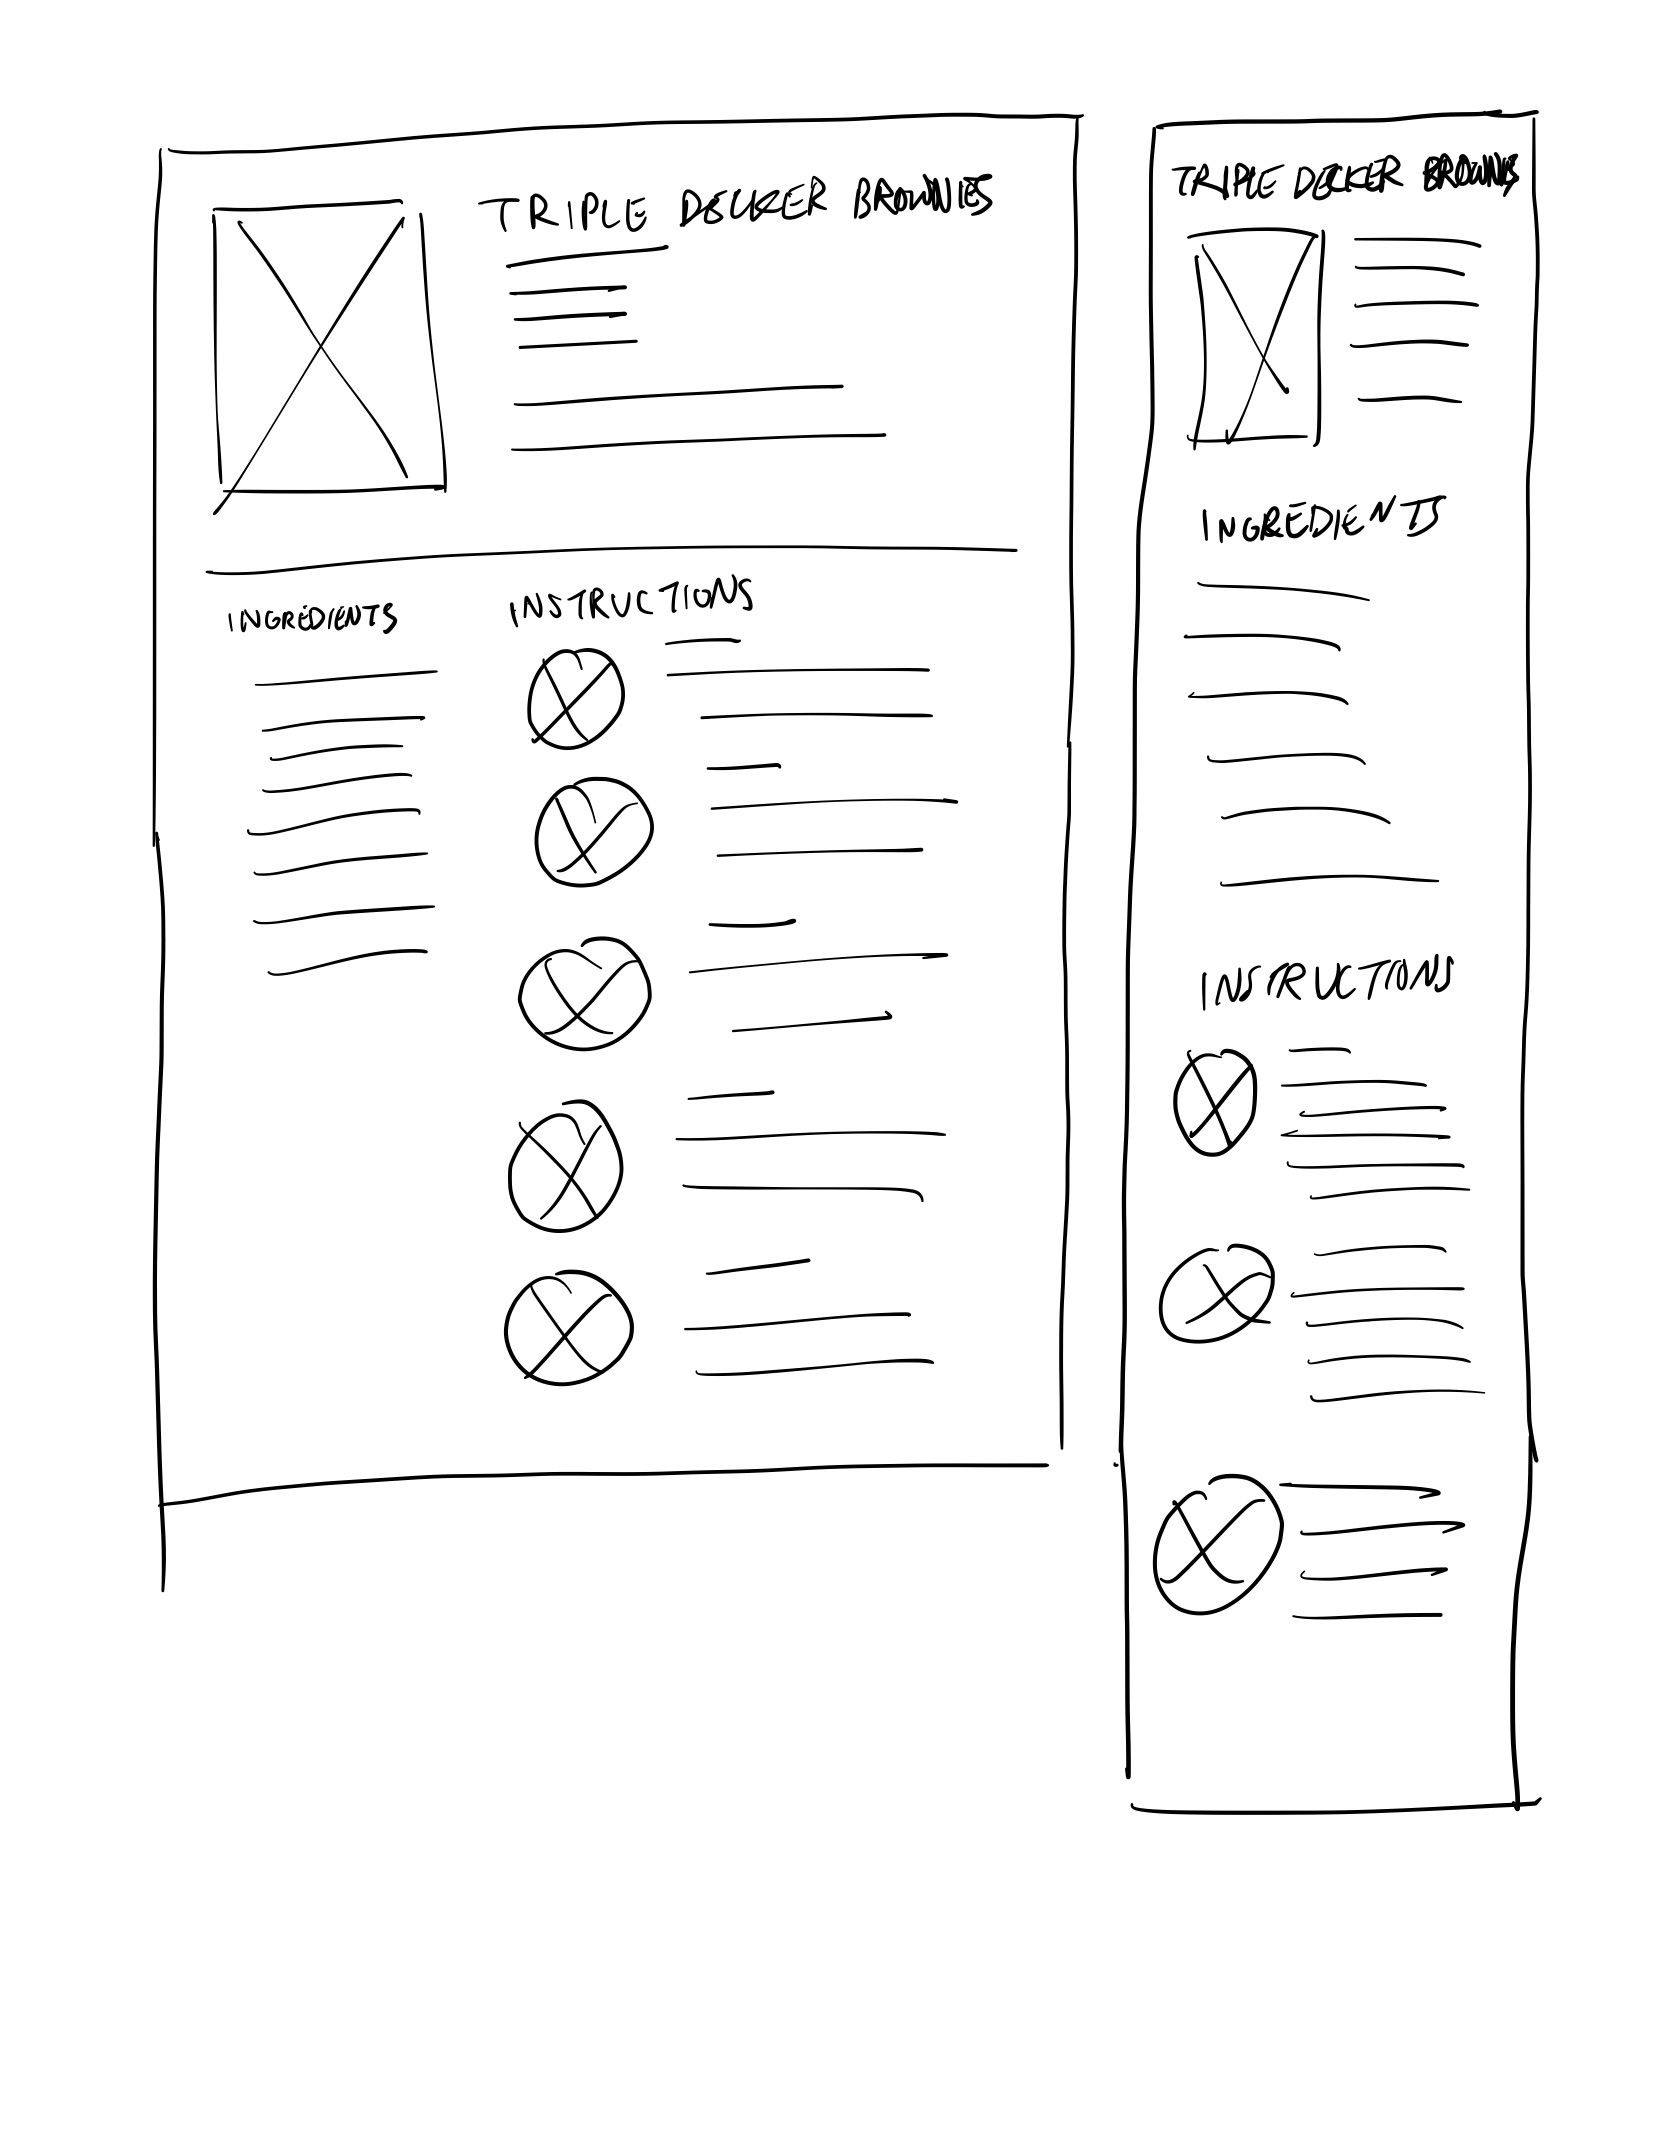 TRIPLE DECKER BROWNIES
INGREDIENTS
INSTRUCTIONS
TRIPLE DECKER BROWNIES
INGREDIENTS
INSTRUCTIONS